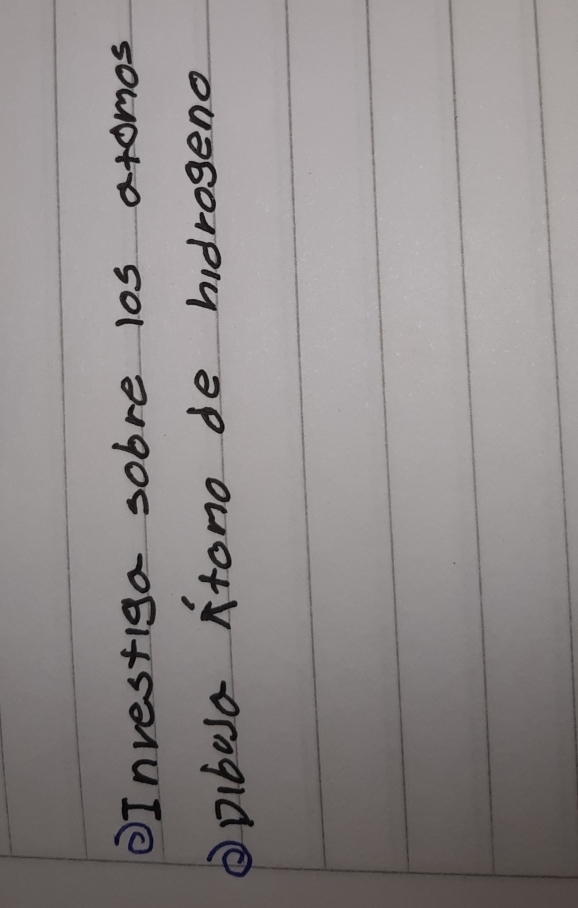 @Investiga sobre los atomos
@Dibuja Átomo de hidrogeno